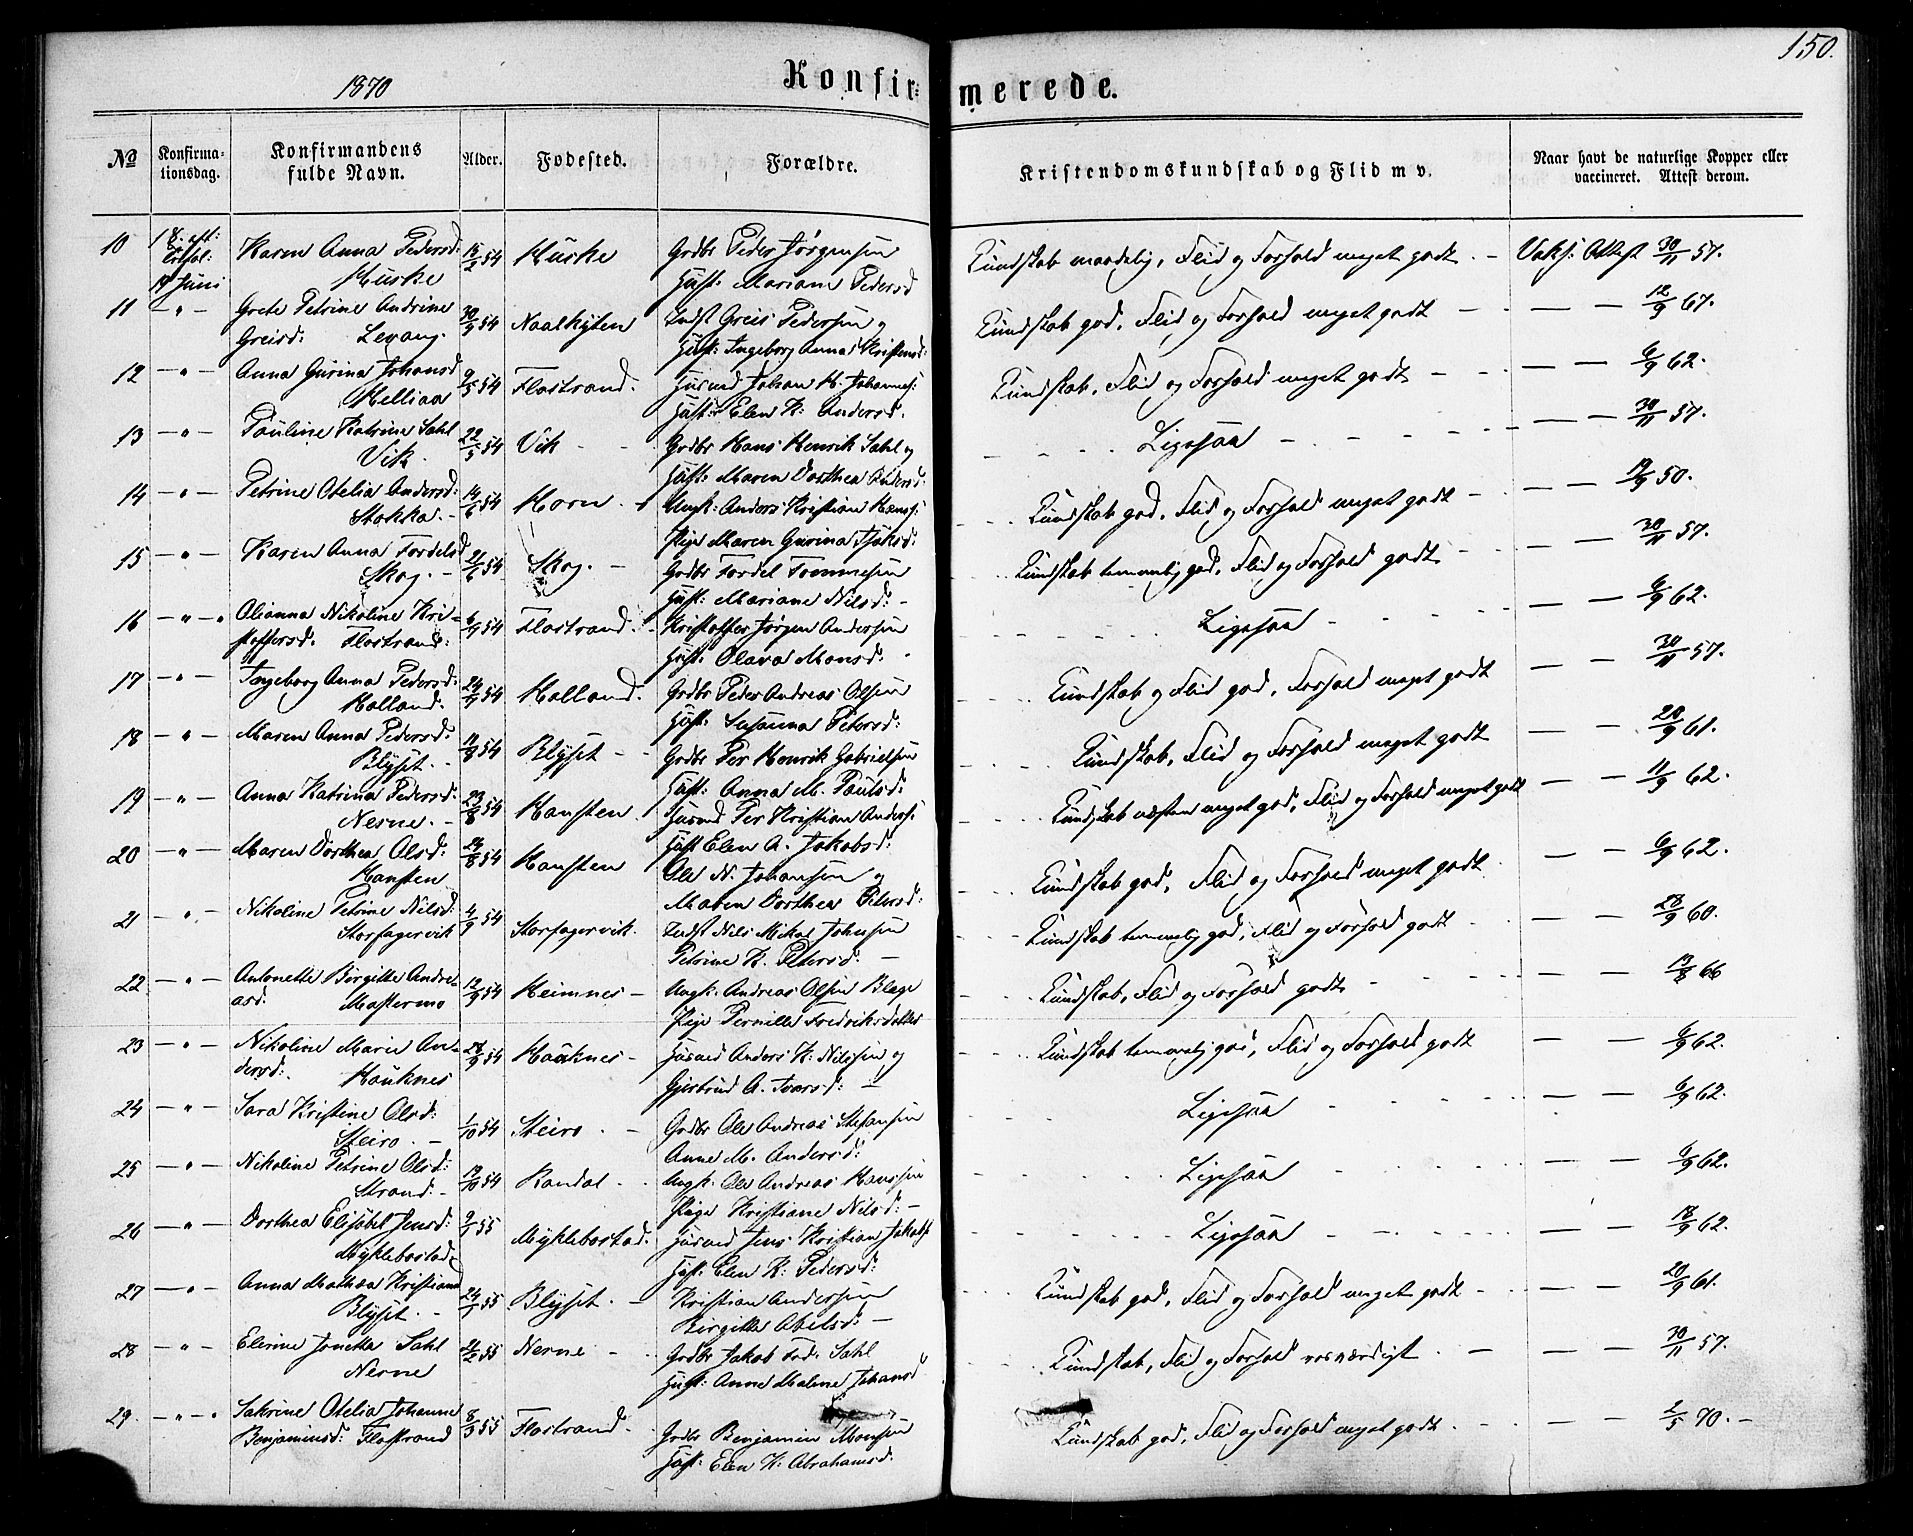 1870 Konfir=merede. 150.
No Konfirma-tionsdag. Konfirmandens fulde Navn. Alder. Fødested. Forældre. Kristendomskundskab og Flid m v. Naar havt de naturlige Kopper eller vaccineret. Attest derom.
10 Karen Anna Pedersd: 15/2 54 Huske Grdbr Peder Jørgensen Kundskab maadelig, Flid og Forhold meget godt. - Vaks: Attest 30/11 57.
17 Juni Huske Hust: Mariane Pedersd
11 - " - Grete Petrine Andrine 30/9 54 Naalhyten Indst Greis Pedersen og Kundskab god, Flid og Forhold meget godt - - - 12/9 67.
Greisd: Levang. Hust: Ingeborg Anna Kristensd:
12 - " - Anna Gurina Johansd 9/5 54 Flostrand. Husmd Johan H. Johannes: Kundskab, Flid og Forhold meget godt - - - 6/9 62.
Helliaa Hustr: Elen K: Andersd.
13 - " - Pauline Katrine Sahl 22/5 54 Vik - - Grdbr Hans Henrik Sahl og Ligesaa - - - 30/11 57.
Vik. Hust: Maren Dorthea Andersd.
14 - " - Petrine Otelia Andersd: 14/6 54 Horn - Ungk: Anders Kristian Hans: Kundskab god, Flid og Forhold meget godt - - - 19/9 50.
Stokka. - Pige Maren Gurina
15 " - Karen Anna Fordelsd 21/6 54 Skog. - Grdbr Fordel Tommesen Kundskab temmelig god, Flid og Forhold godt - - - 30/11 57.
Skog. - Hust: Mariane Nilsd: -
16 - " - " Olianna Nikoline Kri- 6/7 54 Flostrand. - Kristoffer Jørgen Andersen Ligesaa - - - 6/9 62.
stoffersd. Flostrand. Hust: Olava Monsd:
17 - " - Ingeborg Anna Pedersd: 24/7 54 Holland. Grdbr Peder Andreas Olsen Kundskab og Flid god, Forhold meget godt - - 30/11 57.
Holland. Hust: Susanna Petersd:
18 - " - Maren Anna Pedersd: 11/8 54 Blysit - - Grdbr Per Henrik Gabrielsen Kundskab, Flid og Forhold meget godt - - 20/9 61.
Blysit. - Hust: Anna M. Paulsd:
19 - " - Anna Katrina Pedersd. 23/8 54 Hansten. Husmd Per Kristian Anders: Kundskab næsten meget god, Flid og Forhold meget godt - - 11/9 62.
Nerne. - Hust Elen A. Jakobsd:
20 - " - Maren Dorthea Olsd: 24/8 54 Hansten Ole N. Johansen og Kundskab god, Flid og Forhold meget godt - - 6/9 62.
Hansten Maren Dorthea Petersd:
21 - " - Nikoline Petrine Nilsd: 4/9 54 Storfagervik. Indst Nils Mikal Johnsen Kundskab temmelig god, Flid og Forhold godt - - 28/9 60.
Storfagervik Petrine K. Petersd: -
22 - " - Antonette Birgitte Andre- 12/9 54 Heimnes - Ungk: Andreas Olsen Kundskab, Flid og Forhold godt - 17/8 66
asd. Mastermo Pige Pernille Fredriksdatter
23 - " - Nikoline Marie An- 28/9 54 Hauknes - Husmd Anders K. Nilssen og Kundskab temmelig god, Flid og Forhold godt 6/9 62.
dersd: Hauknes Gjertrud A. Ivarsd: -
24 - " - Sara Kristine Olsd: 1/10 54 Steiro. - Grdbr Ole Andreas Stefansen Ligesaa 6/9 62.
Steiro. - Anne M. Andersd:
25 - " - Nikoline Petrine Olsd: 19/10 54 Randal - Ungk: Ole Andreas Hanssen Ligesaa - - 6/9 62.
Strand. - Pige Kristiane Nilsd: -
26 - " - Dorthea Elisabet Jensd: 9/1 55 Myklebostad. Husmd Jens Kristian Jakobs Ligesaa - - 18/9 62.
Myklebostad. Hust: Elen K: Pedersd:
27 - " - Anna Mathea Kristiansd 24/1 55 Blysit. - Kristian Andersen Kundskab god, Flid og Forhold meget godt - - 20/9 61.
Blysit. - Birgitte Abelsd: -
28 - " - Elerine Jonetta Sahl 21/2 55 Nerne - Grdbr Jakob Sahl Kundskab, Flid og Forhold rosværdigt. - - - 30/11 57.
Nerne Hust: Anne Maline Johansd
29. - " - " Sakrine Otelia Johanne 8/3 55 Flostrand. Grdbr Benjamin Monsen Kundskab god, Flid og Forhold meget godt. - - 2/5 70. -
Benjaminsd: Flostrand Hust: Elen K: Abrahamsd.